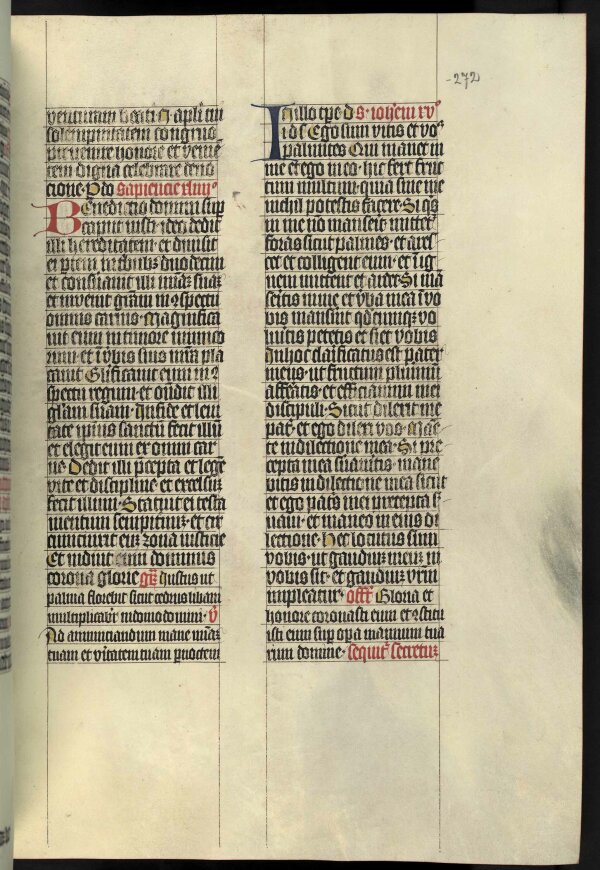 -272
venturam beati N· apli tui
solempnitatem congruo
prevenire honore et vene
rem digna celebrare devo
cione· P do sapiencie xliiii
Benedictio domini sup
caput iusti· ideo dedit
illi hereditatem· et divisit
ei ptem in tribus duodecim
et conservavit illi
et invenit gram in ꝯspectu
omnis carnis· Magnifica
vit eum in timore inimico
rum· et i vbis suis
cavit Glificavit eum in ꝯ
spectu regum· et ondit illi
glam suam· In fide et leni
tate ipius sanctu fecit illu
et elegit eum ex omni car
ne· Dedit illi pcepta et lege
vite et discipline· et excelsum
fecit illum· Statuit ei testa
mentum sempitnu· et cir
cumcinxit eum zona iusticie
Et induit eum dominus
corona glorie gr Iustus ut
palma florebit sicut cedrus libani
multiplicabr in domo domini· v
Ad annunciandum mane miam
tuam et vitatem tuam p noctem
In illo tpe d s· iohem xv
i d s Ego sum vitis et vos
palmites Qui manet in
me et ego in eo· hic fert fruc
tum multum· quia sine me
nichil potestis facere· Si qs
in me no manserit mittet
foras sicut palmes· et ares
cet et colligent eum· et i ig
nem mittent et ardet· Si man
seritis in me et vba mea i vo
bis manserint qdcumq vo
lueritis petetis et fiet vobis
In hoc clarificatus est pater
meus· ut fructum plurimu
afferatis· et efficiamini mei
discipuli· Sicut dilexit me
pat· et ego dilexi vos· Mane
te in dilectione mea· Si pre
cepta mea suavitis· mane
bitis in dilectione mea sicut
et ego patris mei precepta s
vavi· et maneo in eius di
lectione· Hec locutus sum
vobis· ut gaudium meum in
vobis sit· et gaudium vrm
impleatur· off Gloria et
honore coronasti eum et ꝯstitu
isti eum sup opa manuum tua
rum domine· Sequit secretum